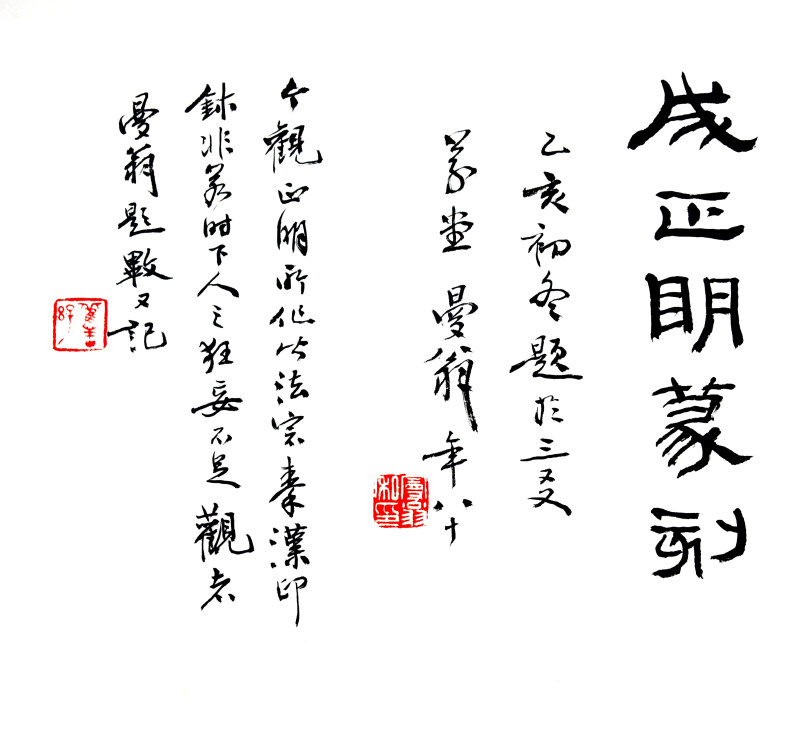 成正明篆刻
乙亥初冬题於三
堂 曼翁年八十
今觀正明所作以法宗秦漢印
鉥非若时下人之狂妄不足觀者
曼翁题又記